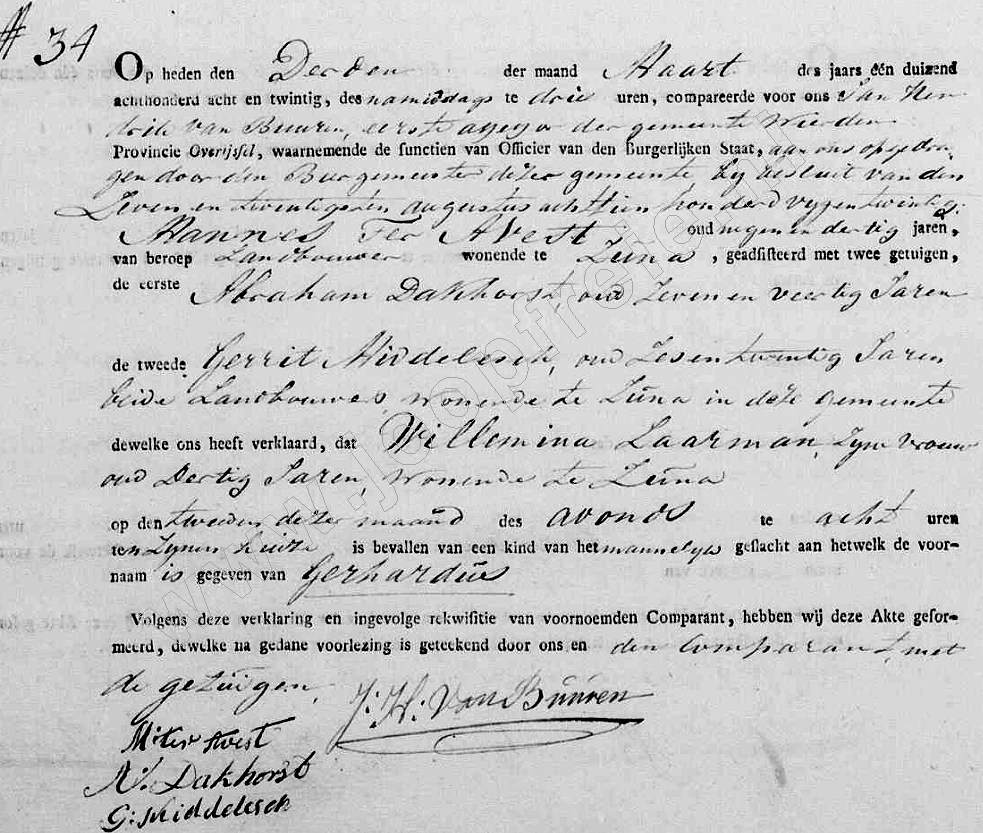 # 34
Op heden den Derden der maand Maart des jaars één duizend
achthonderd acht en twintig, des namiddags te drie uren, compareerde voor ons Jan Hen-
drik van Buuren, eerste assessor der gemeente Wierden
Provincie Overijssel, waarnemende de functien van Officier van den Burgerlijken Staat, aan ons opgedra-
gen door den Burgemeester dezer gemeente by besluit van den
Zeven en twintigsten augustus achttien honderd vyf en twintig.
Mannes Ter Avest oud negen en dertig jaren,
van beroep Landbouwer wonende te Zuna, geadsisteerd met twee getuigen,
de eerste Abraham Dakhorst, oud Zeven en veertig Jaren
de tweede Gerrit Middelesch, oud Zes en twintig Jaren
beide Landbouwers, wonende te Zuna in deze gemeente
dewelke ons heeft verklaard, dat Willemina Laarman, Zyn vrouw
oud Dertig Jaren, wonende te Zuna
op den tweeden dezer maand des avonds te acht uren
ten Zynen huize is bevallen van een kind van het mannelyk geslacht aan hetwelk de voor-
naam is gegeven van Gerhardus
Volgens deze verklaring en ingevolge rekwisitie van voornoemden Comparant, hebben wij deze Akte gefor-
meerd, dewelke na gedane voorlezing is geteekend door ons en den Comparant, met
de getuigen.
J: H: Van Buuren
M: ter Avest
A: Dakhorst
G: Middelesch